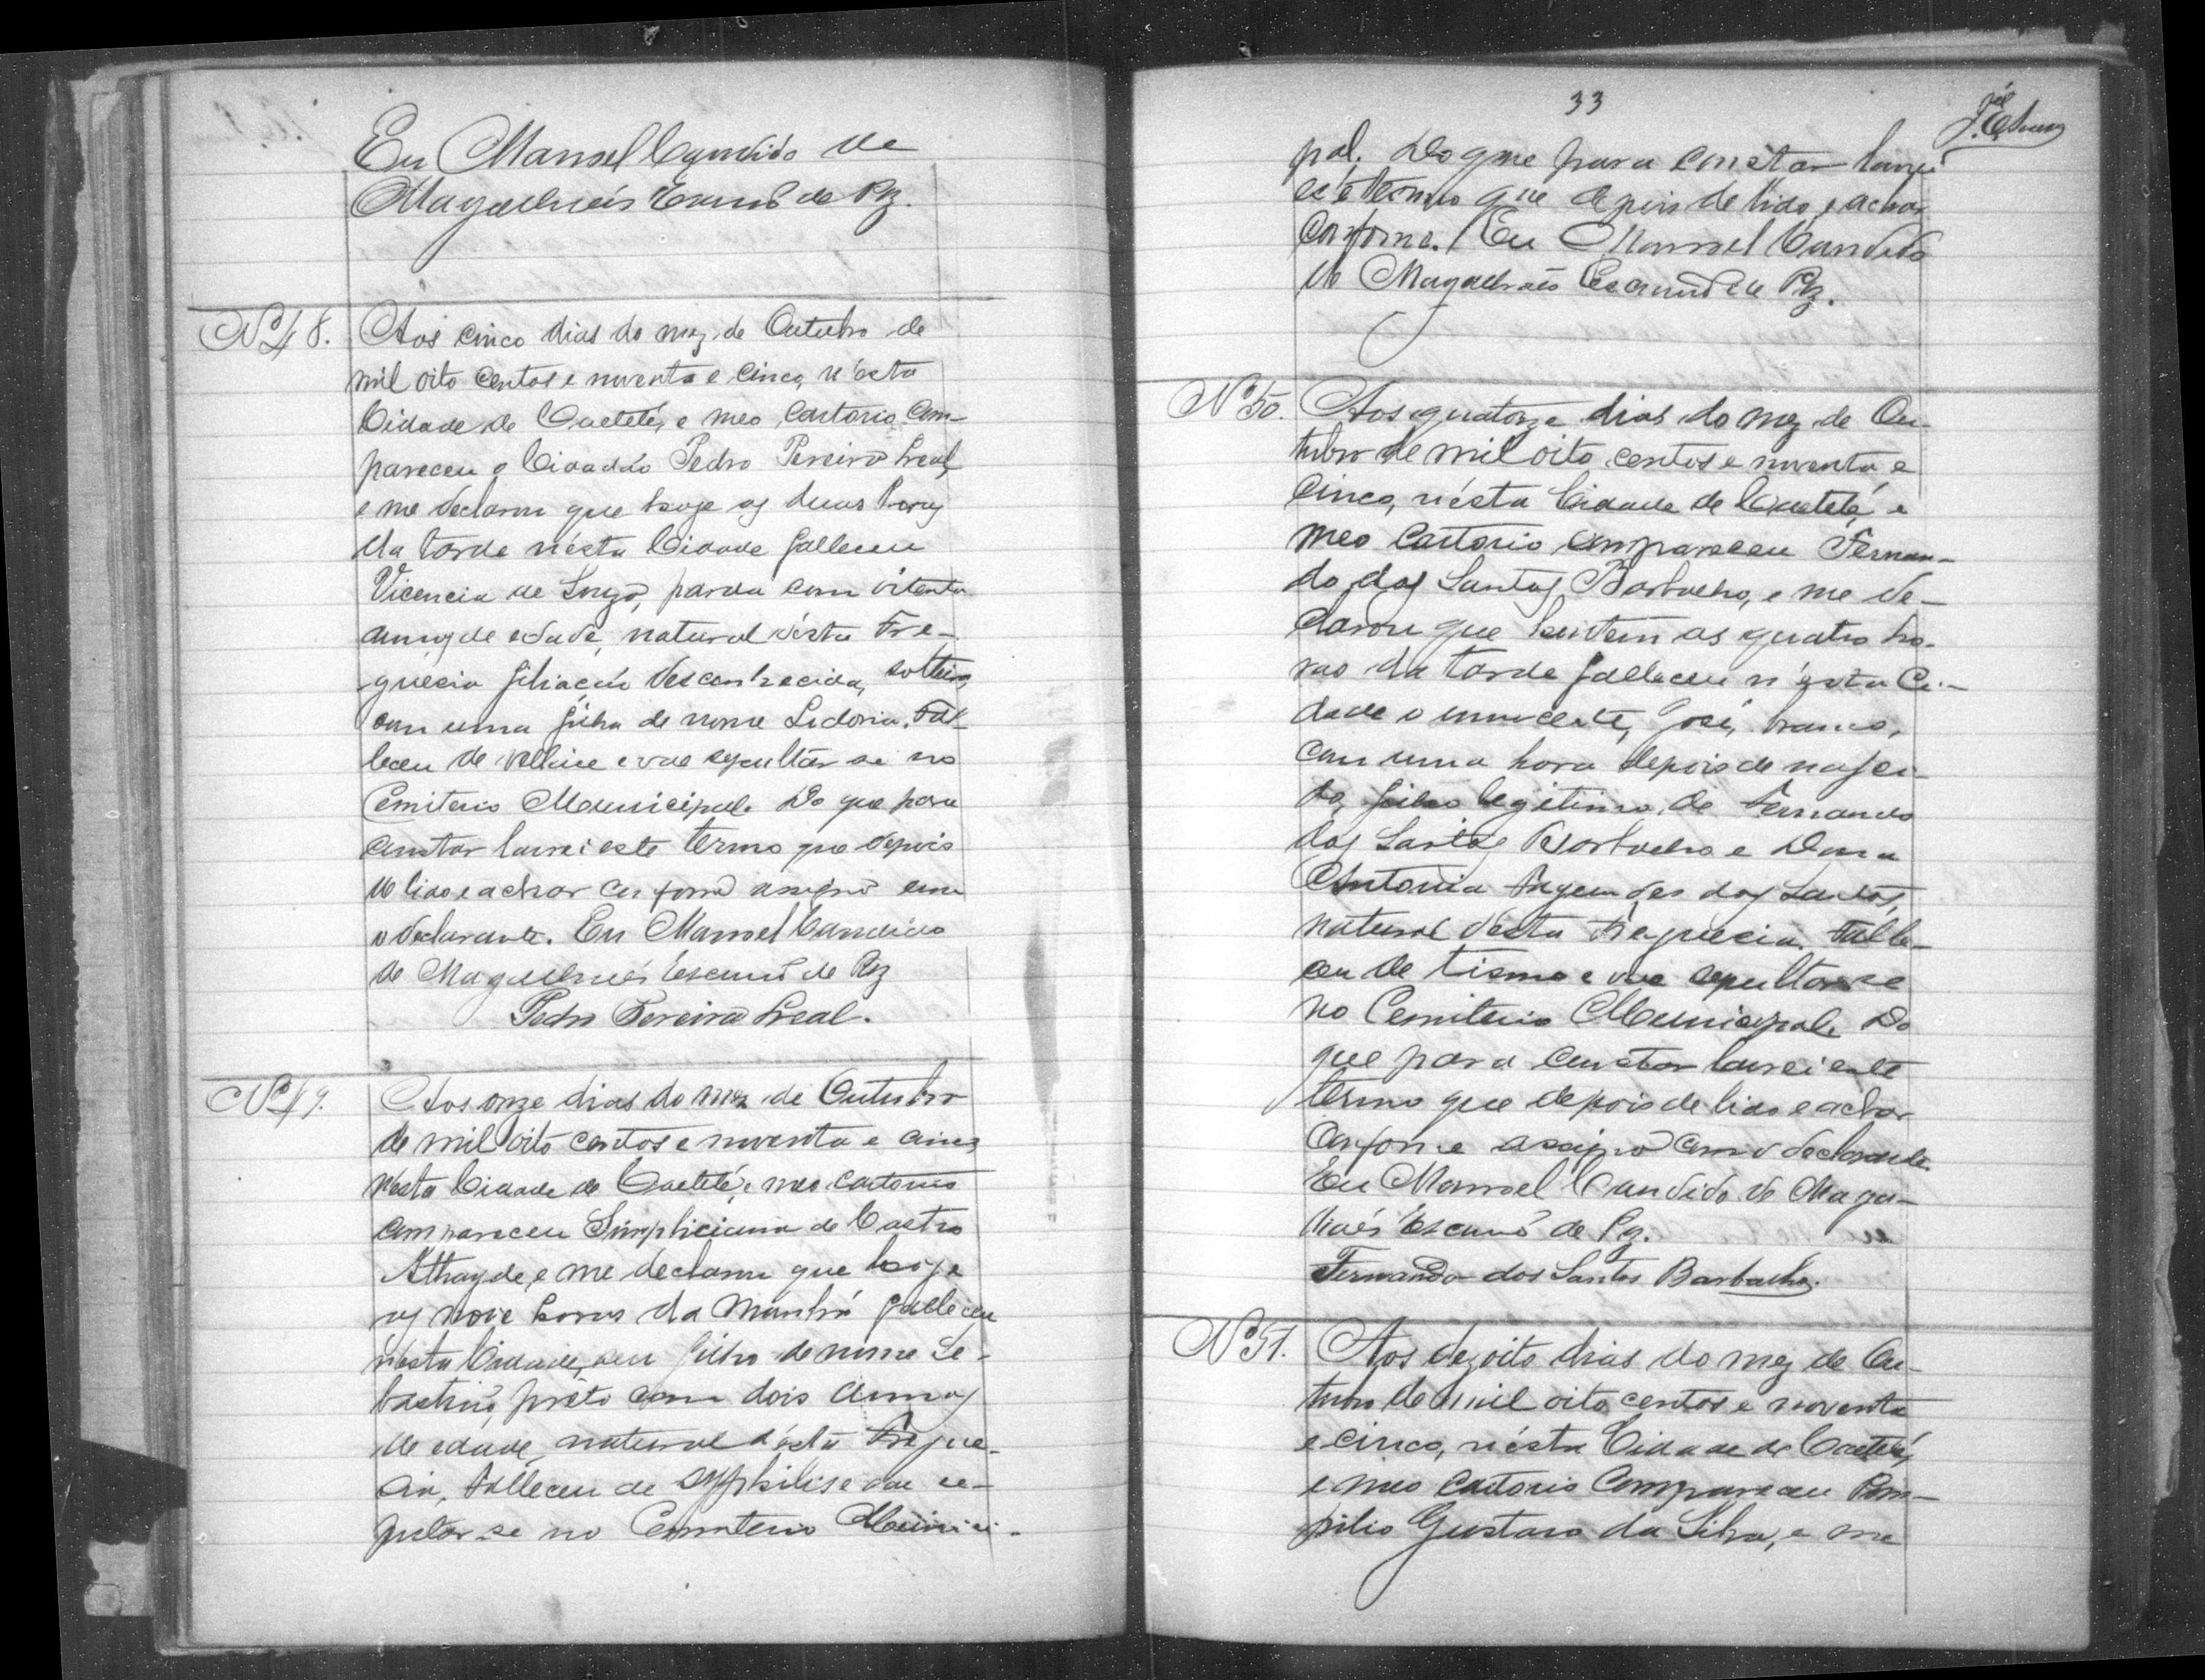 Eu Manoel Candido de
Magalhães Escrivº de Paz.
Nº 48.
Aos cinco dias do mez de Outubro de
mil oito centos e noventa e cinco, n'esta
Cidade de Caeteté, e meo Cartorio com-
pareceu o Cidadão Pedro Pereira Leal,
e me declarou que hoje as duas horas
da tarde n'esta Cidade falleceu
Vicencia de Souza, parda com oitenta
annos de edade, natural désta Fre-
guesia filiação desconhecida, solteira,
com uma filha de nome Lidoria. Fal-
leceu de velhice e vae sepultar-se no
Cemiterio Municipal. Do que para
constar lavrei este termo que depois
de lido e achar conforme assigno com
o declarante. Eu Manoel Candido
de Magalhães Escrivº de Paz
Pedro Pereira Leal.
Nº 49.
Aos onze dias do mez de Outubro
de mil oito centos e noventa e cinco
nésta Cidade de Caeteté, e meo Cartorio
compareceu Simpliciana de Castro
Athayde, e me declarou que hoje
as nove horas da manhã falleceu
nésta Cidade, seu filho de nome Se-
bastião, preto com dois annos
de edade, natural désta Fregue-
sia, falleceu de syphilis e vae se-
pultar-se no Cemiterio Munici-
33
pal. Do que para constar lavrei
este termo que depois de lido, e achar
conforme. Eu Manoel Candido
de Magalhães Escrivº de Paz.
Nº 50.
Aos quatorze dias do mez de Ou-
tubro de mil oito centos e noventa e
cinco, n'ésta Cidade de Caeteté, e
meo Cartorio compareceu Fernan-
do dos Santos Barbalho, e me de-
clarou que hontem as quatro ho-
ras da tarde falleceu n'ésta Ci-
dade o innocente, José, branco,
com uma hora depois de nasci-
do, filho legitimo, de Fernando
dos Santos Barbalho e Dona
Antonia dos Santos,
natural désta Freguesia. Falle-
ceu de tismo e vae sepultar-se
no Cemiterio Municipal. Do
que para constar lavrei este
termo que depois de lido e achar
conforme assigno com o declarante.
Eu Manoel Candido de Maga-
lhães Escrivº de Pz.
Fernando dos Santos Barbalho.
Nº 51.
Aos dezoito dias do mez de Ou-
tubro de mil oito centos e noventa
e cinco, n'ésta Cidade de Caeteté,
e meo Cartorio compareceu Pom-
pilio Gustavo da Silva, e me